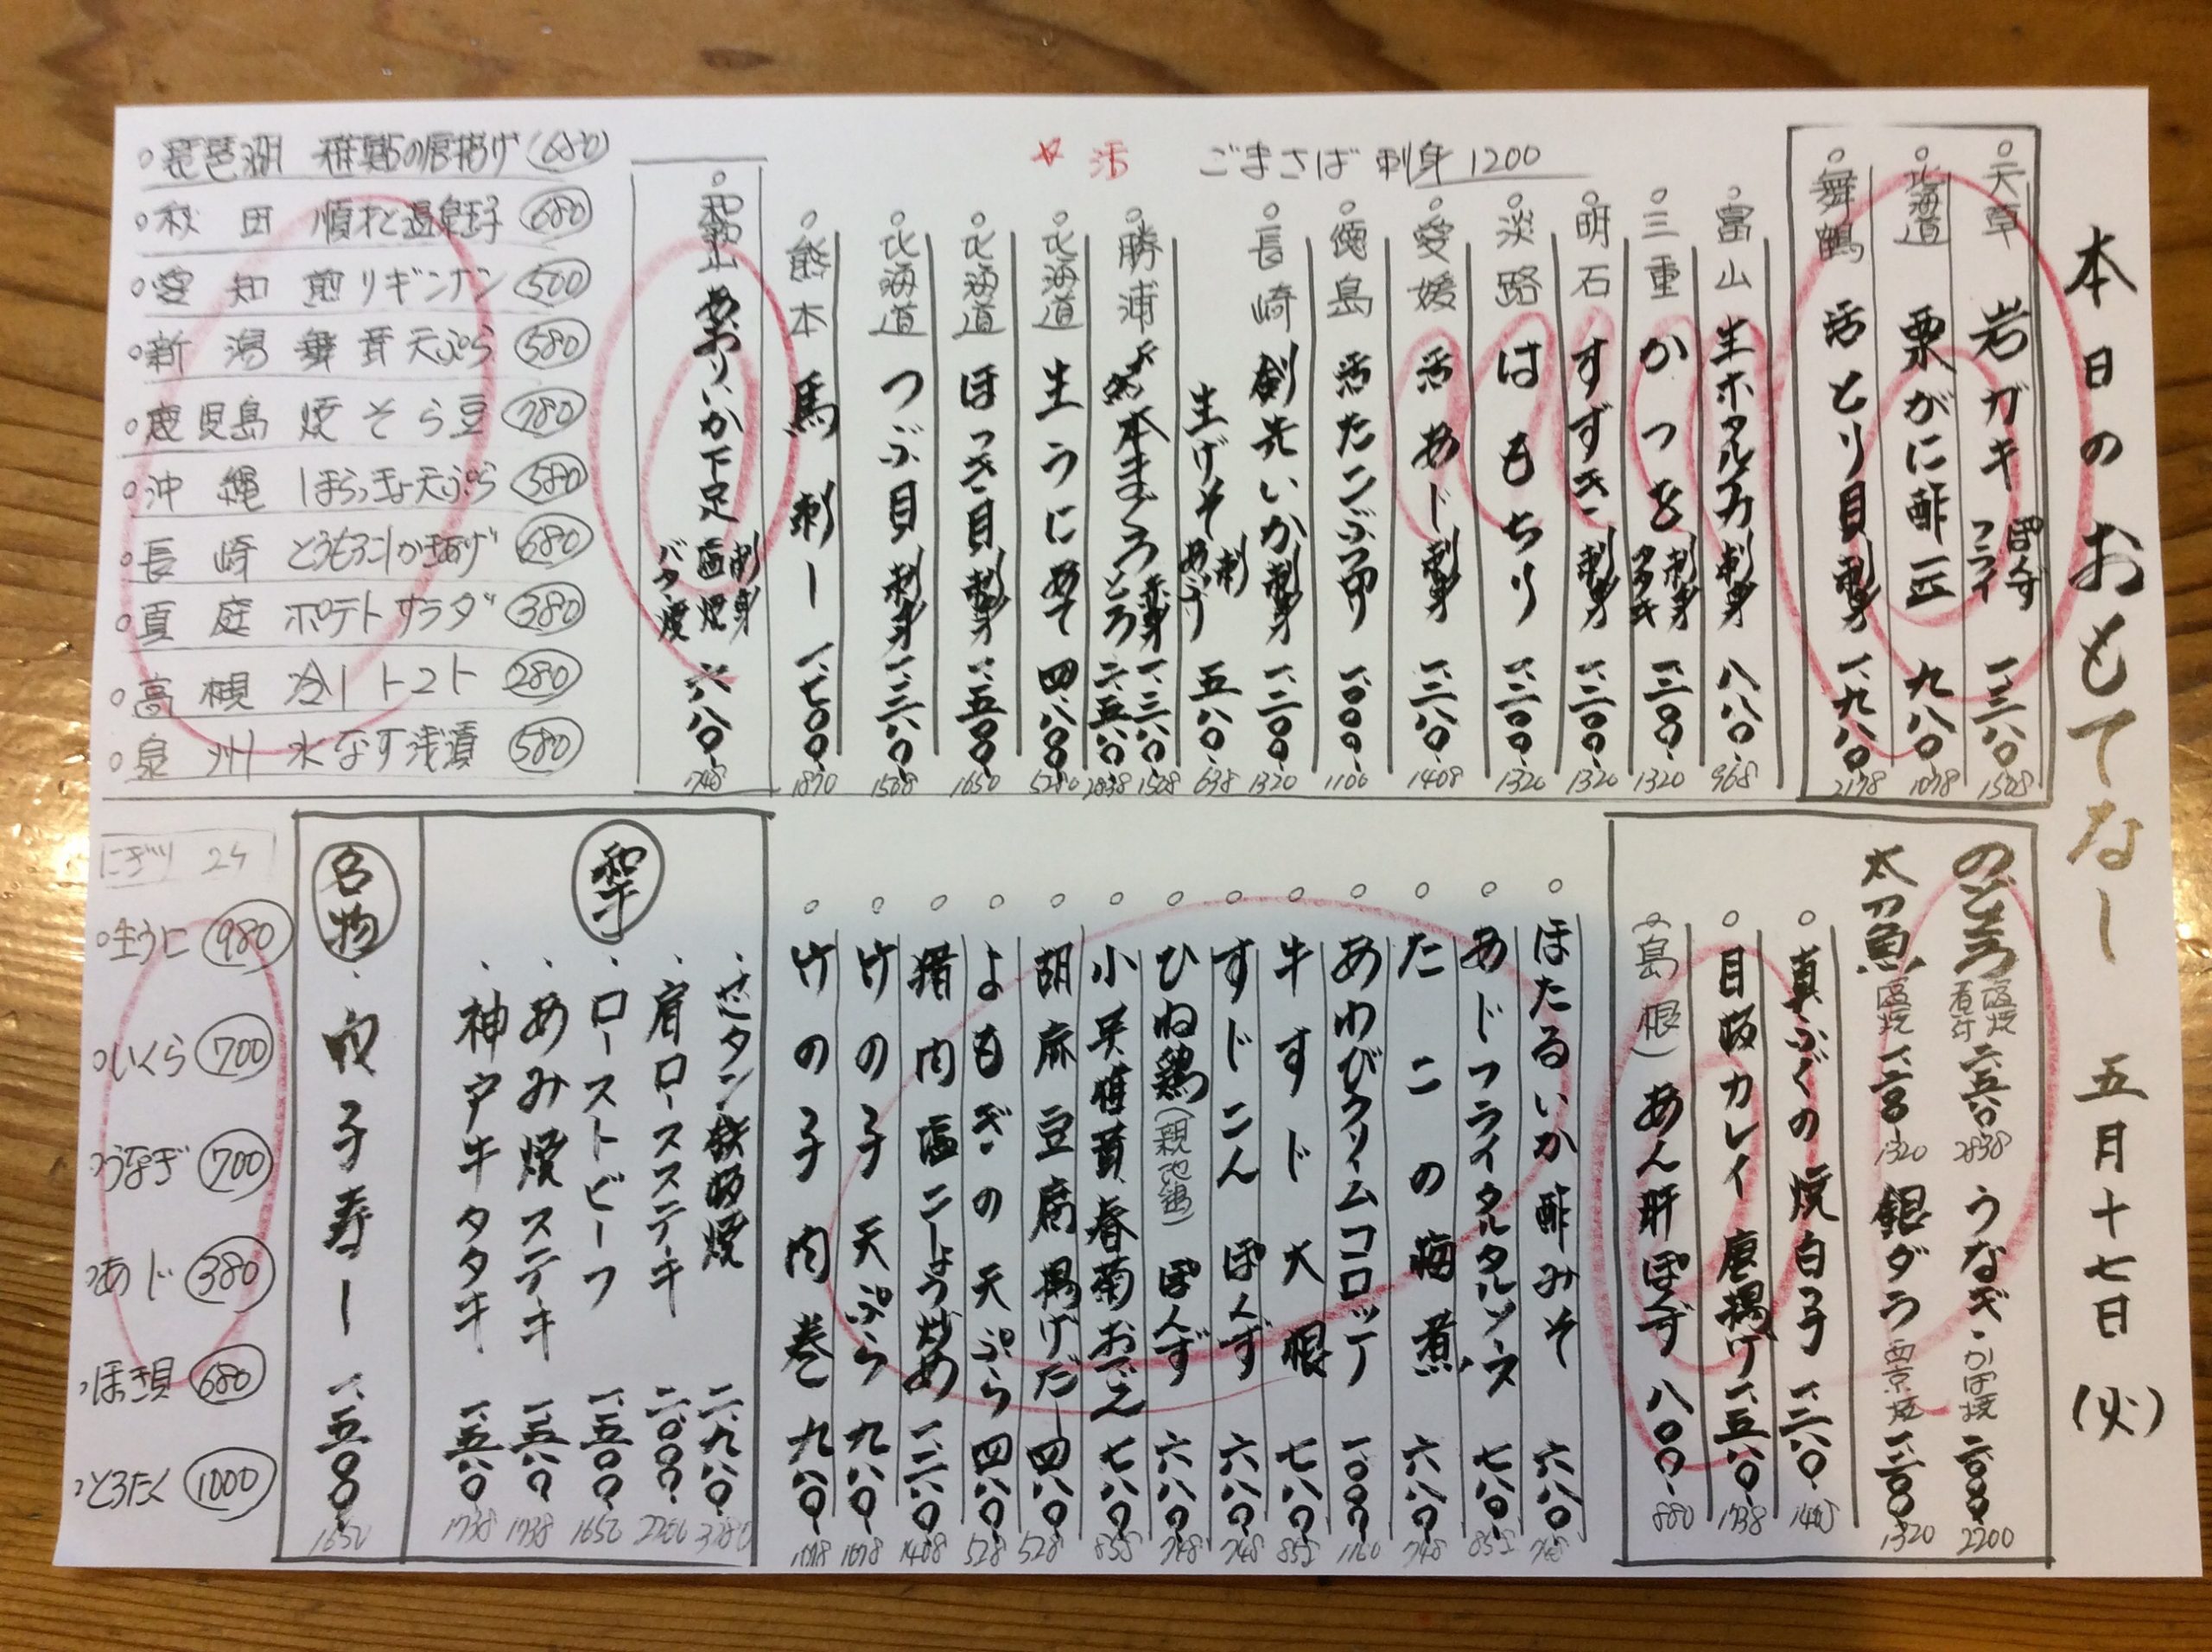 本日のおもてなし 五月十七日(火)
☆活 ごまさば 刺身 1200
○天草 岩ガキ ぽんず フライ 一、三八〇 1508
○北海道 栗がに酢 一匹 九八〇 1078
○舞鶴 活とり貝 刺身 一、九八〇 2178
○富山 生ホタルイカ 刺身 八八〇 968
○三重 かつを 刺身 タタキ 一、二〇〇 1320
○明石 すずき 刺身 一、二〇〇 1320
○淡路 はもちり 一、二〇〇 1320
○愛媛 活あじ 刺身 一、二八〇 1408
○徳島 活たこぶつ切り 一、〇〇〇 1100
○長崎 剣先いか 刺身 一、二〇〇 1320
生げそ 刺 あぶり 五八〇 638
○勝浦 生本まぐろ 赤身 一、三八〇 1508
とろ 二、五八〇 2838
○北海道 生うにあて 四、八〇〇 5280
○北海道 ほっき貝 刺身 一、五〇〇 1650
○北海道 つぶ貝 刺身 一、三八〇 1508
○熊本 馬刺し 一、七〇〇 1870
○和歌山 あおりいか下足 刺身 塩焼 バター焼 六八〇 748
○琵琶湖 稚鮎の唐揚げ 680
○秋田 順才と温泉玉子 680
○愛知 煎りギンナン 500
○新潟 舞茸天ぷら 580
○鹿児島 焼そら豆 780
○沖縄 しまらっきょ天ぷら 580
○長崎 とうもろこしかきあげ 680
○真庭 ポテトサラダ 380
○高槻 冷しトマト 280
○泉州 水なす浅漬 580
のどぐろ 塩焼 煮付 二、五八〇 2838
うなぎ・かば焼 二、〇〇〇 2200
太刀魚 塩焼 一、二〇〇 1320
銀ダラ 西京焼 一、二〇〇 1320
○真ふぐの焼白子 一、二八〇 1408
○目板カレイ 唐揚げ 一、五八〇 1738
(島根) あん肝ぽんず 八〇〇 880
○ほたるいか酢みそ 六八〇 748
○あじフライタルタルソース 七八〇 858
○たこの梅煮 六八〇 748
○あわびクリームコロッケ 一、〇〇〇 1100
○牛すじ大根 七八〇 858
○すじこん ぽんず 六八〇 748
○ひね鶏(親地鶏) ぽんず 六八〇 748
○小芋椎茸春菊おでん 七八〇 858
○胡麻豆腐揚げだし 四八〇 528
○よもぎの天ぷら 四八〇 528
○猪肉塩こしょう炒め 一、二八〇 1408
○竹の子天ぷら 九八〇 1078
○竹の子肉巻 九八〇 1078
和牛
・芯タン鉄板焼 二、九八〇
・肩ロースステーキ 二、〇〇〇 2200
・ローストビーフ 一、五〇〇 1650
・あみ焼ステーキ 一、五八〇 1738
・神戸牛タタキ 一、五八〇 1738
名物
・穴子寿し 一、五〇〇 1650
にぎり 2ケ
○生うに 980
○いくら 700
○うなぎ 700
○あじ 380
○ほっき貝 680
○とろたく 1000